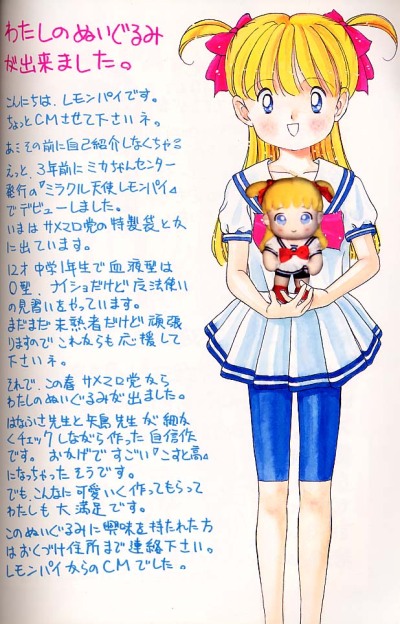 わたしのぬいぐるみ
が出来ました。
こんにちは、レモンパイです。
ちょっとCMさせて下さいネ。
あ、その前に自己紹介しなくちゃ
えっと、3年前にミカちゃんセンター
発行の『ミラクル天使レモンパイ』
でデビューしました。
いまはサメマロ党の特製袋とか
に出ています。
12才中学1年生で血液型は
O型、ナイショだけど魔法使い
の見習いをやっています。
まだまだ未熟者だけど頑張
りますのでこれからも応援して
下さいネ。
それで、この春サメマロ党から
わたしのぬいぐるみが出ました。
はなふさ先生と矢島先生が細か
くチェックしながら作った自信作
です。おかげですごい『こすと高』
になっちゃったそうです。
でもこんなに可愛いく作ってもらって
わたしも大満足です。
このぬいぐるみに興味を持たれた方
はおくづけ住所まで連絡下さい。
レモンパイからのCMでした。